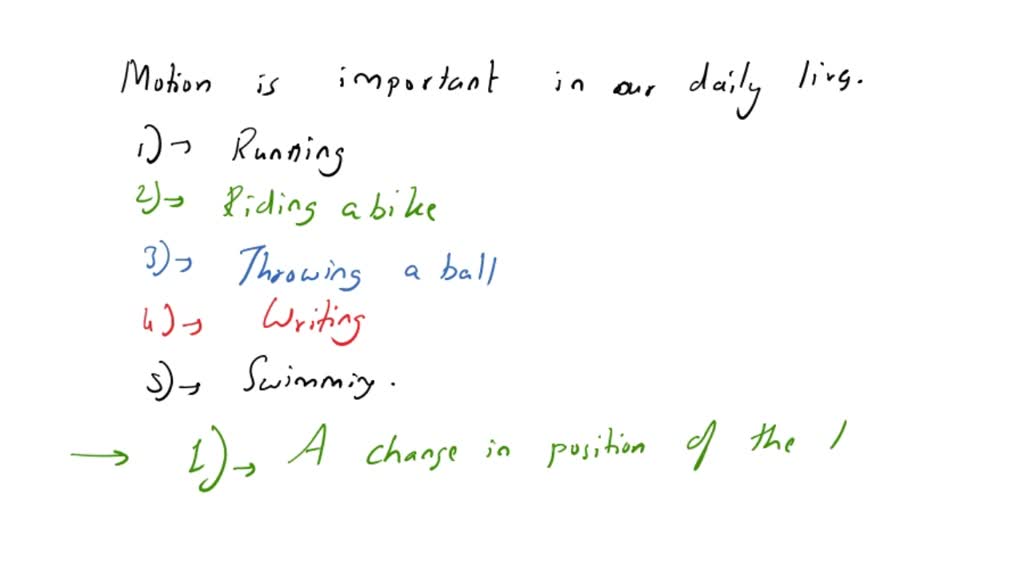 Motion is important in our daily livg.
1)→ Running
2)→ Riding a bike
3)→ Throwing a ball
4)→ Writing
5)→ Swimmig.
→ 1)→ A change in position of the